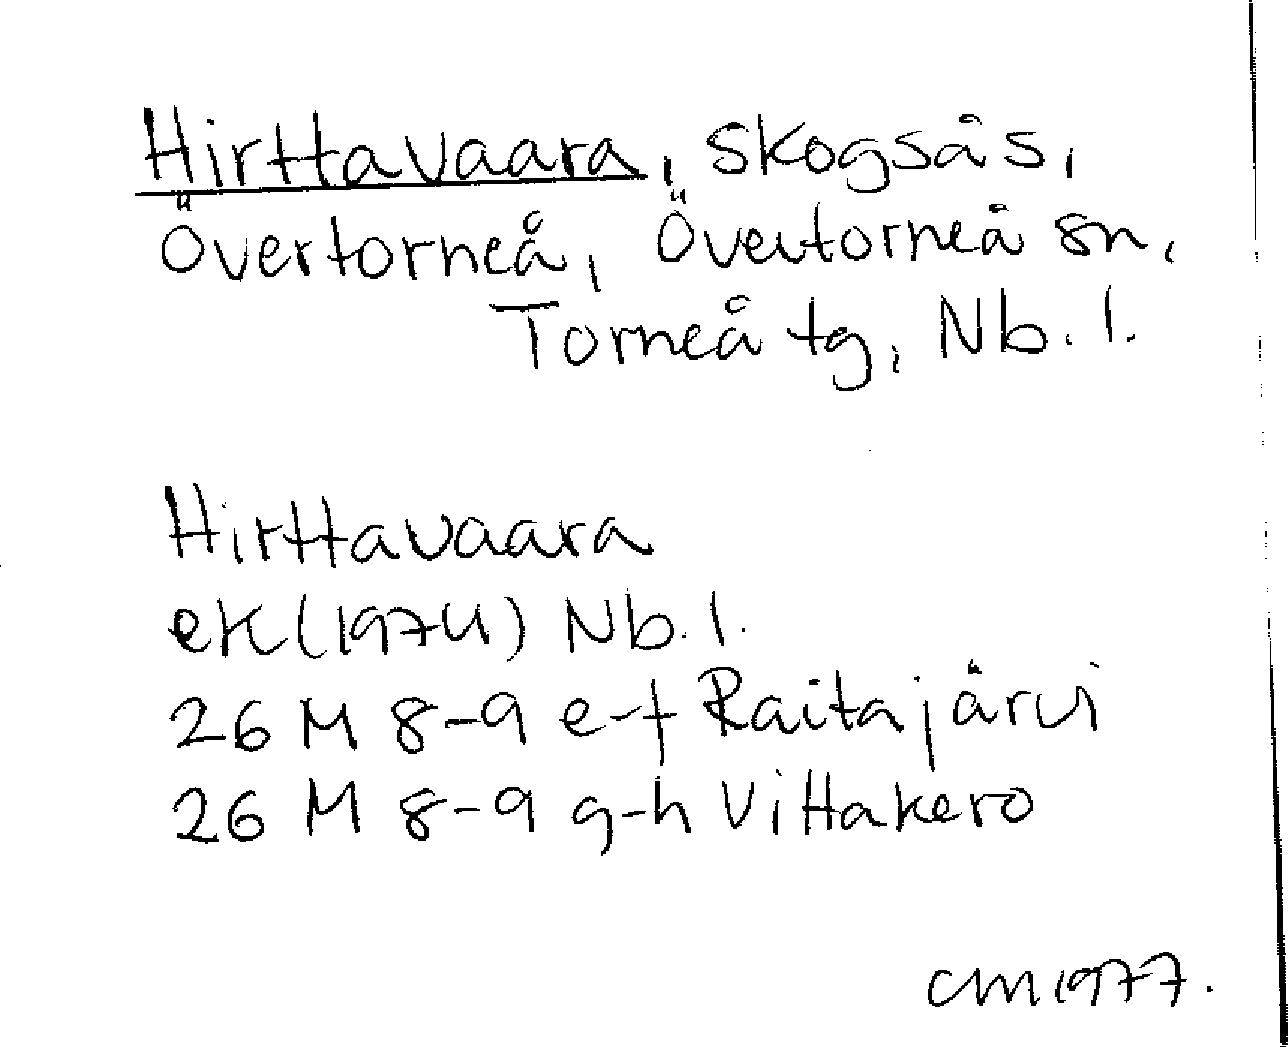 Hirttavaara, skogsås,
Övertorneå, Övertorneå sn,
Torneå tg, Nb. l.
Hirttavaara
ek (1974) Nb. l.
26 M 8-9 e-f Raitajärvi
26 M 8-9 g-h Vittakero
CM 1977.